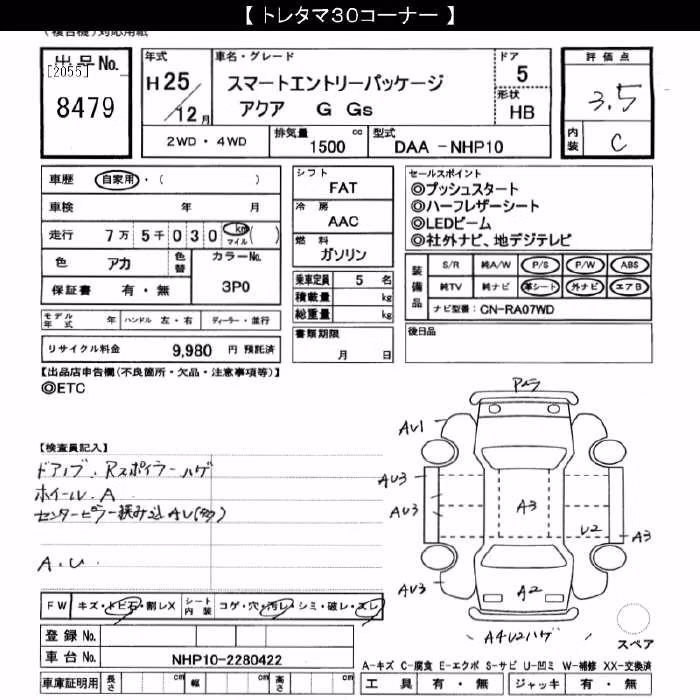 【 トレタマ30コーナー 】
(複合機)対応用紙
出品No.
[2055]
8479
年式
H25/12月
車名・グレード
スマートエントリーパッケージ
アクア G Gs
ドア
5
形状
HB
評価点
3.5
内装
C
2WD・4WD
排気量 1500 cc
型式 DAA -NHP10
車歴 自家用・( )
車検 年 月
走行 7万5千030 km マイル ( )
色 アカ 色替
カラーNo.
3P0
保証書 有・無
シフト
FAT
冷房
AAC
燃料
ガソリン
乗車定員 5 名
積載量 kg
総重量 kg
書類期限
月 日
セールスポイント
◎プッシュスタート
◎ハーフレザーシート
◎LEDビーム
◎社外ナビ、地デジテレビ
装備品
S/R 純A/W P/S P/W ABS
純TV 純ナビ 革シート 外ナビ エアB
ナビ型番: CN-RA07WD
後日品
モデル年式 年 ハンドル 左・右 ディーラー・並行
リサイクル料金 9,980 円 預託済
【出品店申告欄(不良箇所・欠品・注意事項等)】
◎ETC
【検査員記入】
ドアノブ、Rスポイラーハゲ
ホイール、A
センターピラー挟み込AU(多)
A.U
FW キズ・トビ石・割レX
シート内装 コゲ・穴・汚レ・シミ・破レ・スレ
登録No.
車台No. NHP10-2280422
車庫証明用 長さ cm 幅 cm 高さ cm
AU1
AU3
AU3
A3
U2
A3
AU3
A2
A4U2ハゲ
スペア
A-キズ C-腐食 E-エクボ S-サビ U-凹ミ W-補修 XX-交換済
工具 有・無 ジャッキ 有・無